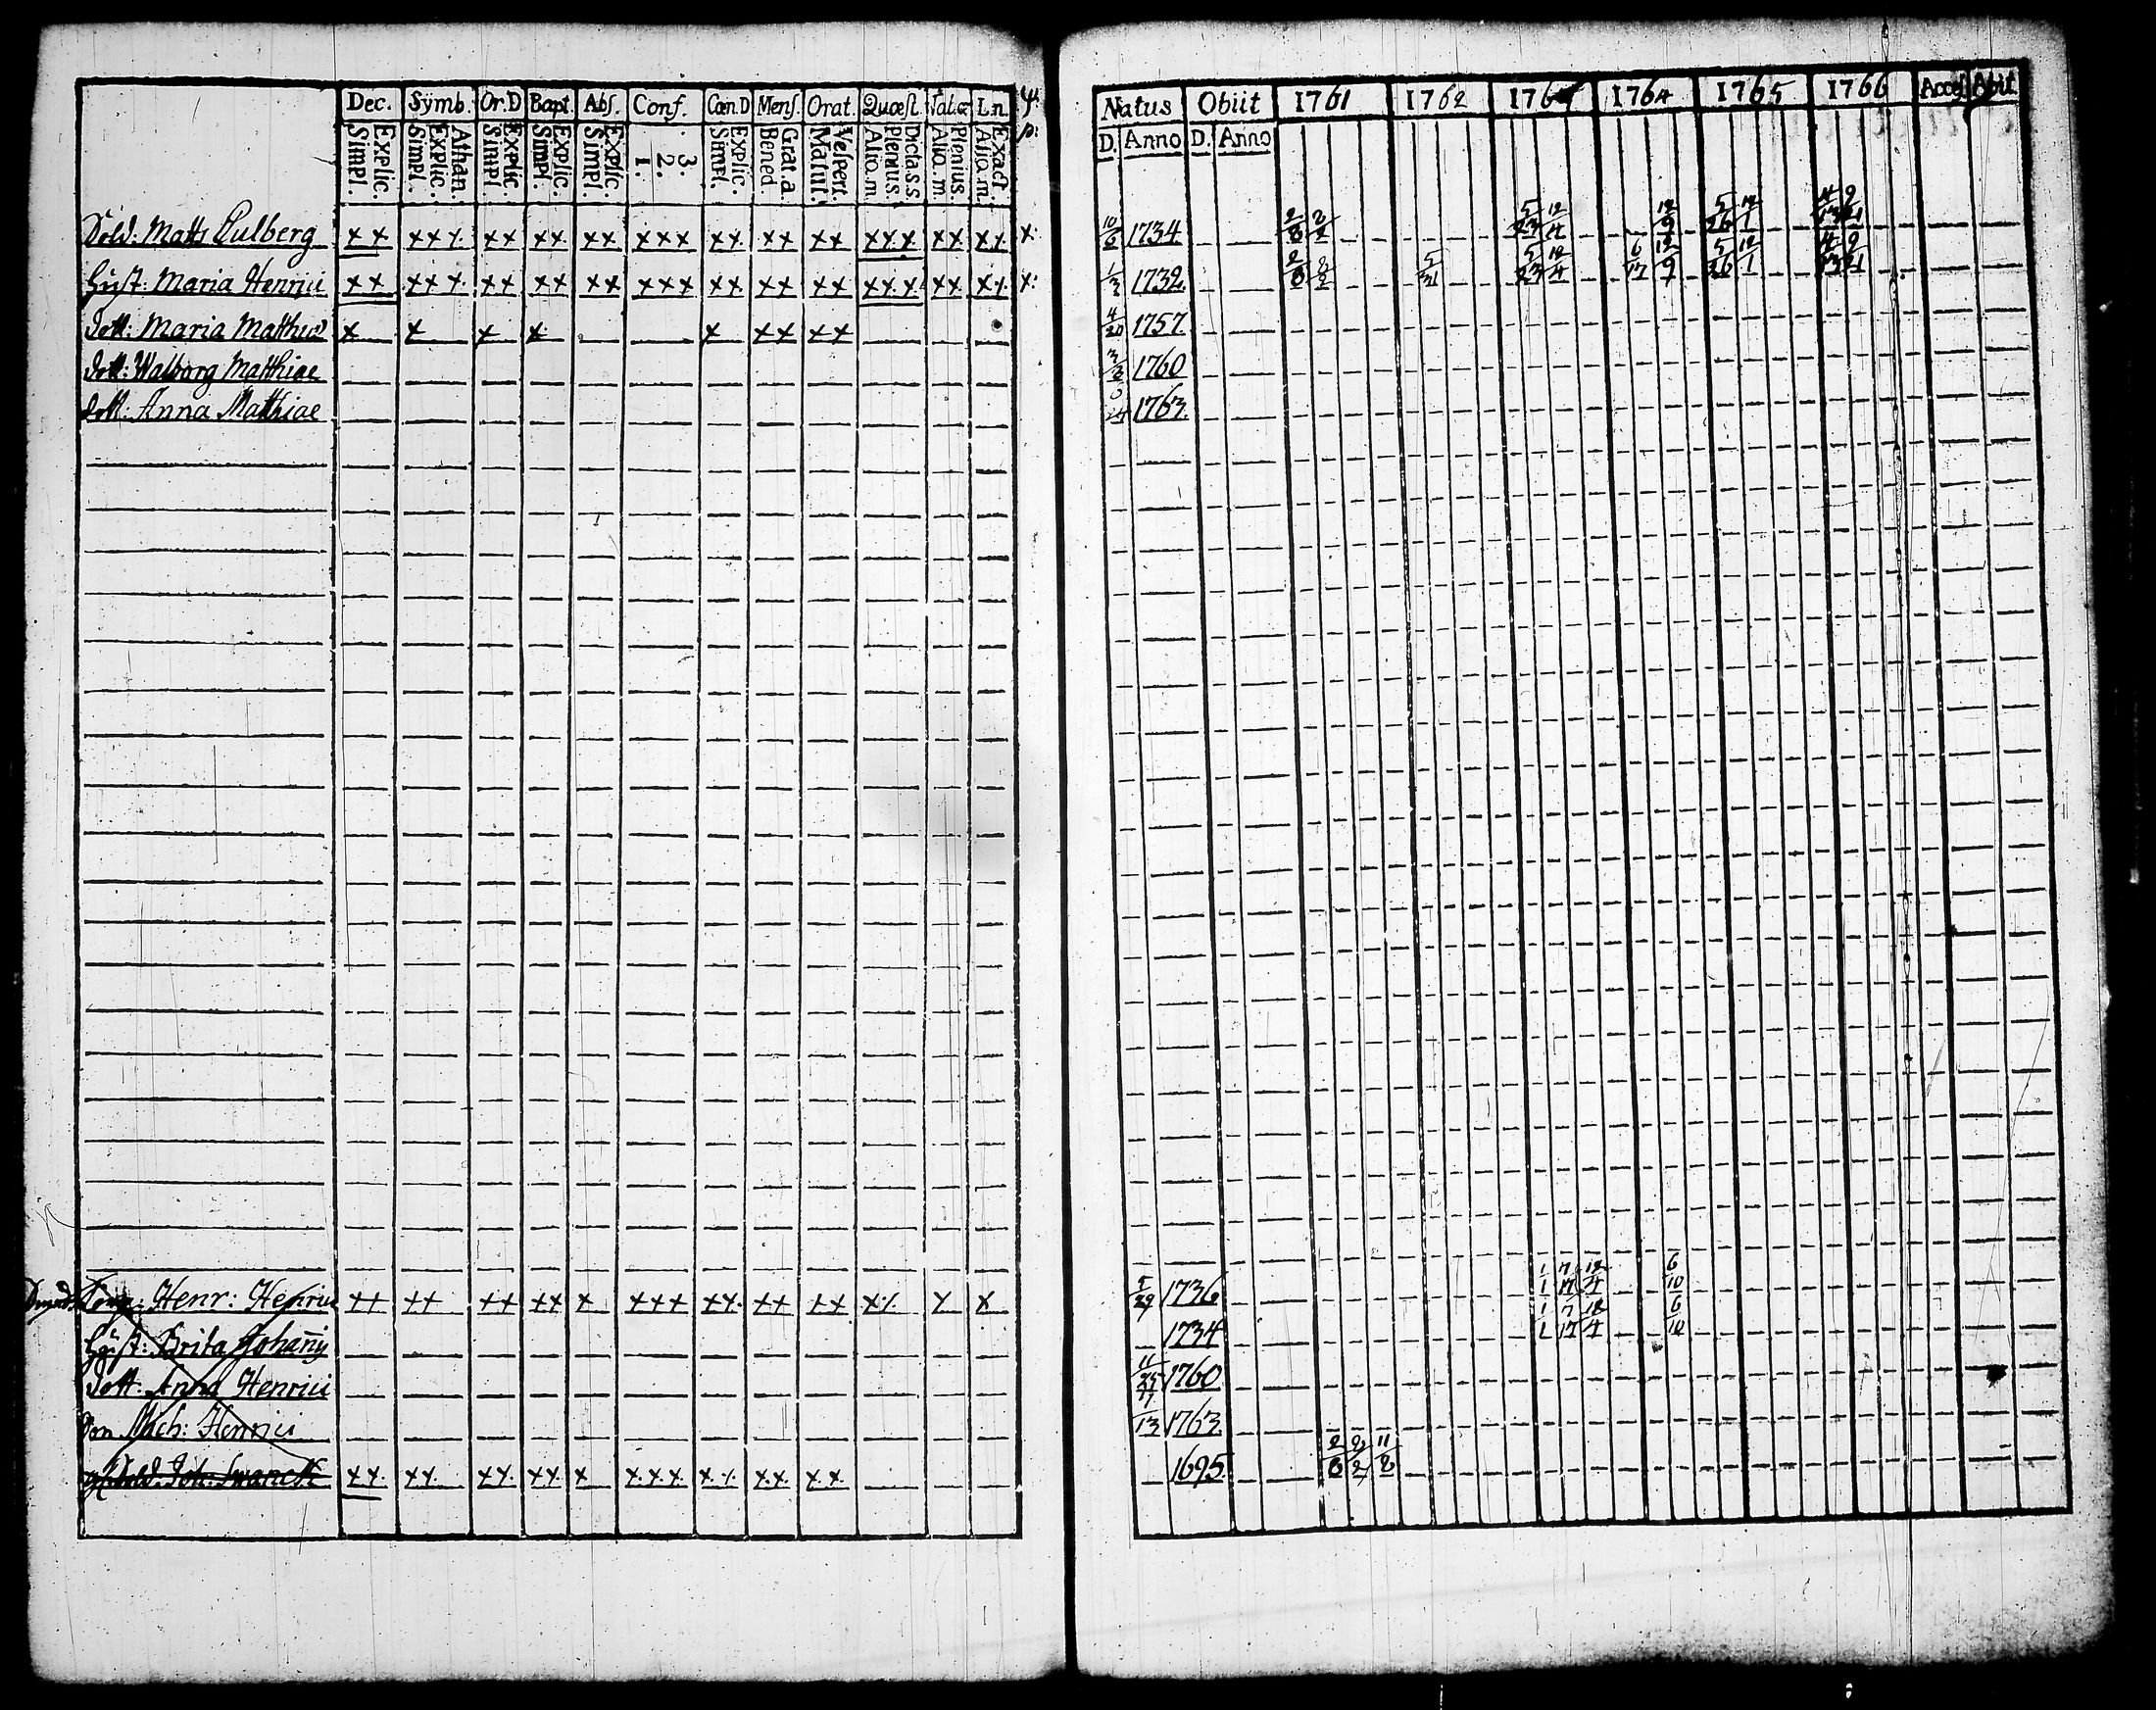 Dec. Symb. Or.D Bapt. Abs. Conf. Cœn.D Mens. Orat. Quæst. Tab.œ L.n. Ψ:
Explic. Simpl. Athan. Explic. Simpl. Explic. Simpl Explic. Simpl. Explic. Simpl. 3. 2. 1. Explic. Simpl. Grat.a. Bened Vespert. Matut Dicta.s.s. Plenius. Aliq.m. Plenius. Aliq.m. Exact. Aliq.m. p:
Sold: Matts Pulberg x x x x x x x x x x x x x x x x x x x x x x x x x x x x x:
Hust: Maria Henrici x x x x x x x x x x x x x x x x x x x x x x x x x x x x x:
Dott: Maria Matthiæ x x x x x x x x x
Dott: Walborg Matthiae
Dott: Anna Matthiae
Henr: Henrici x x x x x x x x x x x x x x x x x x x x x x
Hust: Brita Johan̄is
Dott: Anna Henrici
Son Mich: Henrici
Sold. Joh: Swanck x x x x x x x x x x x x x x x x x x
Natus Obiit 1761 1762 176 1764 1765 1766 Access Abit
D. Anno D. Anno
10/6 1734 2/8 2/2 5/23 12/4 12/9 5/26 12/1 4/13 9/21
1/3 1732 2/8 2/2 5/31 5/23 12/4 6/17 12/9 5/26 12/1 4/13 9/21
4/20 1757
1760
1763
5/29 1736 1/1 7/17 12/4 6/10
1734 1/1 7/17 12/4 6/10
11/25 1760
13 1763
1695 2/8 2/2 11/8